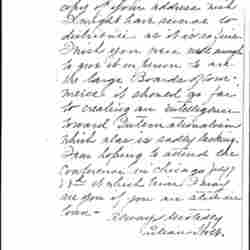 copy of your address wish
I might have some to
distribute as it is so fine.
I wish you were well enough
to give it in person to all
the large Boards of Com-
merce it should go far
to creating an intelligence
toward Internationalism
which alas is sadly lacking.
I am hoping to attend the
Conference in Chicago
at which time I may
see you if you are still in
town -
Always